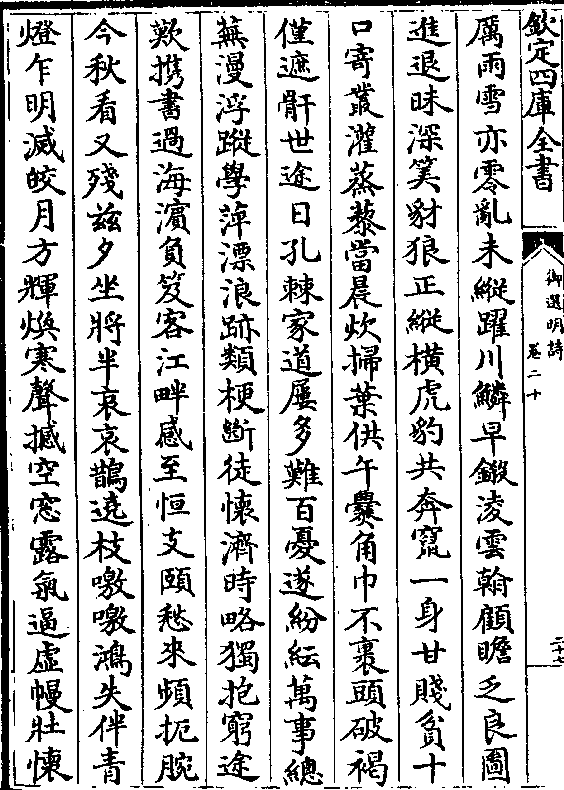 欽定四庫全書
御選明詩
卷二十
二十七
厲雨雪亦零亂未縱躍川鱗早鎩凌雲翰顧瞻乏良圖
進退昧深筭豺狼正縱橫虎豹共奔竄一身甘賤貧十
口寄叢灌蒸藜當晨炊掃葉供午爨角巾不裹頭破褐
僅遮骭世途日孔棘家道屢多難百憂遂紛紜萬事總
蕪漫浮蹤學萍漂浪跡類梗斷徒懷濟時略獨抱窮途
歎携書過海濵負笈客江畔感至恒支頤愁來頻扼腕
今秋看又殘兹夕坐將半哀哀鵲遶枝嗷嗷鴻失伴青
燈乍明滅皎月方輝煥寒聲撼空窓露氣逼虛幔壯懐